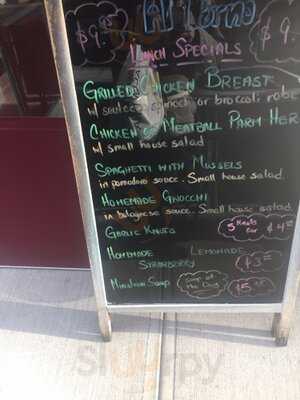 Al Forno
$9.
$9.
Lunch Specials
Grilled Chicken Breast
w/ sauteed spinach or broccoli rabe
Chicken & Meatball Parm Her
w/ small house salad
Spaghetti with Mussels
in pomodoro sauce. Small house salad.
Homemade Gnocchi
in bolognese sauce. Small house salad.
Garlic Knots
5 Knots
For $4
Homemade Lemonade
Strawberry
$3
Soup
Soup of
the Day
$5
Slurrpy